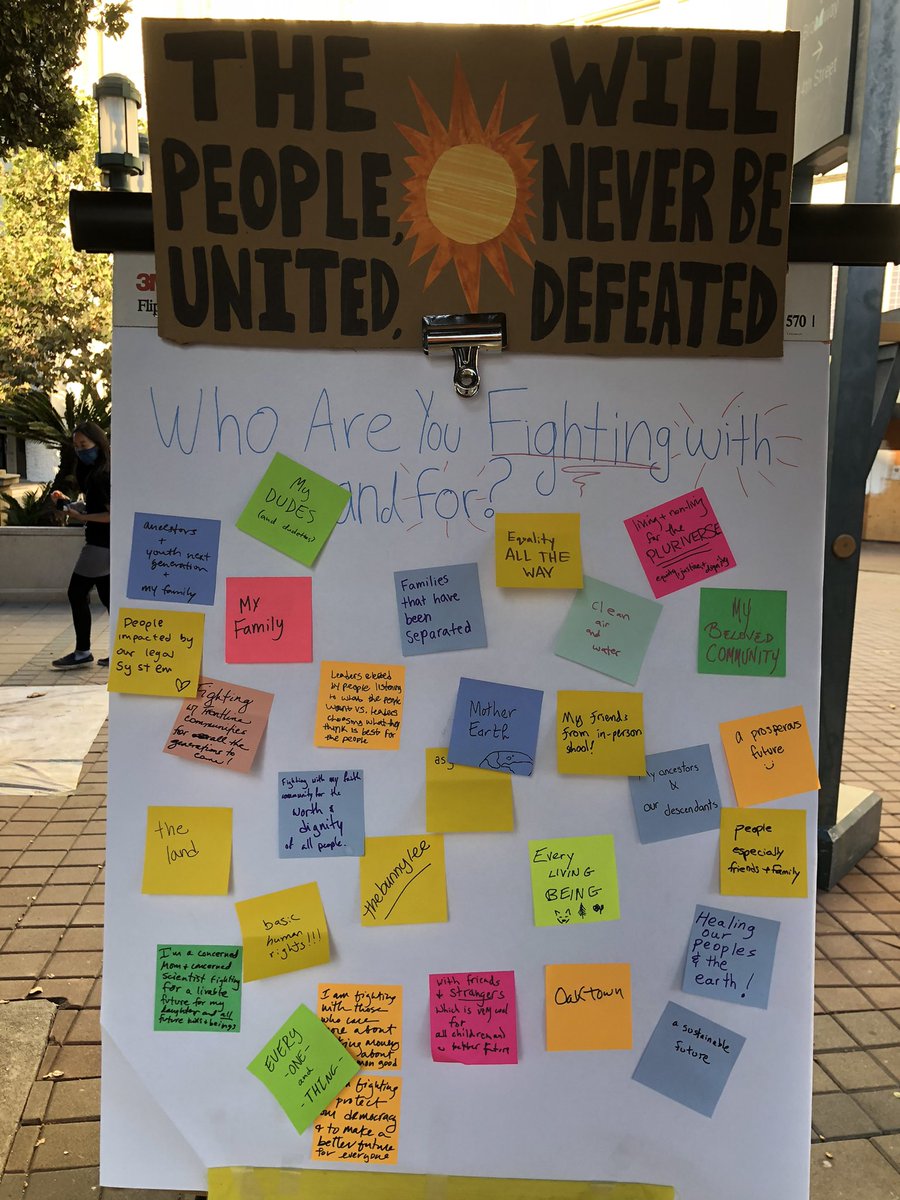 THE
PEOPLE,
UNITED,
WILL
NEVER BE
DEFEATED
3M
Flip
570
4th Street
Who Are You Fighting with
and for?
My
DUDES
(and dudettes)
ancestors
+
youth next
generation
+
my family
Equality
ALL THE
WAY
living + non-living
for the
PLURIVERSE
equity, justice + dignity
My
Family
Families
that have
been
separated
clean
air
and
water
MY
BELOVED
COMMUNITY
People
impacted by
our legal
System
Fighting
w/ frontline
communities
for all the
generations to
come!
Leaders elected
by people listening
to what the people
want vs. leaders
choosing what they
think is best for
the people
Mother
Earth
My friends
from in-person
shool!
a prosperous
future
my ancestors
&
our descendants
Fighting with my faith
community for the
worth &
dignity
of all people.
the
land
thebunnytee
Every
LIVING
BEING
people
especially
friends + family
basic
human
rights!!!
Healing
our
peoples
& the
earth!
I'm a concerned
Mom + concerned
scientist fighting
for a livable
future for my
daughter and all
future kids + beings
I am fighting
with those
who care
more about
about
good
EVERY
-ONE-
and
-THING-
with friends
+ strangers
which is very cool
for
all children and
future
Oaktown
a sustainable
future
fighting
protect
our democracy
& to make a
better future
for everyone